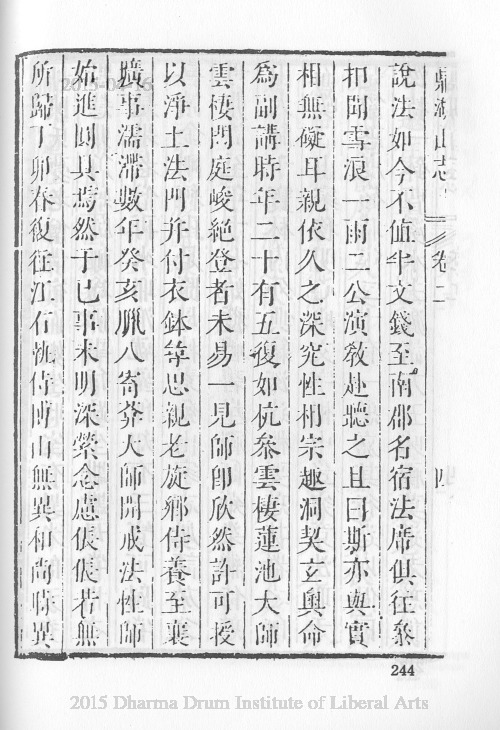 鼎湖山志 卷二 四
說法如今不值半文錢至南郡名宿法席俱往參
扣聞雪浪一雨二公演教赴聽之且曰斯亦與實
相無礙耳親依久之深究性相宗趣洞契玄奧命
為副講時年二十有五復如杭參雲棲蓮池大師
雲棲門庭峻絕登者未易一見師即欣然許可授
以淨土法門并付衣鉢等思親老旋鄉侍養至襄
壙事濡滯數年癸亥臘八寄莽大師開戒法性師
始進圓具焉然于己事未明深縈念慮倀倀若無
所歸丁卯春復往江右執侍博山無異和尚時異
244
2015 Dharma Drum Institute of Liberal Arts